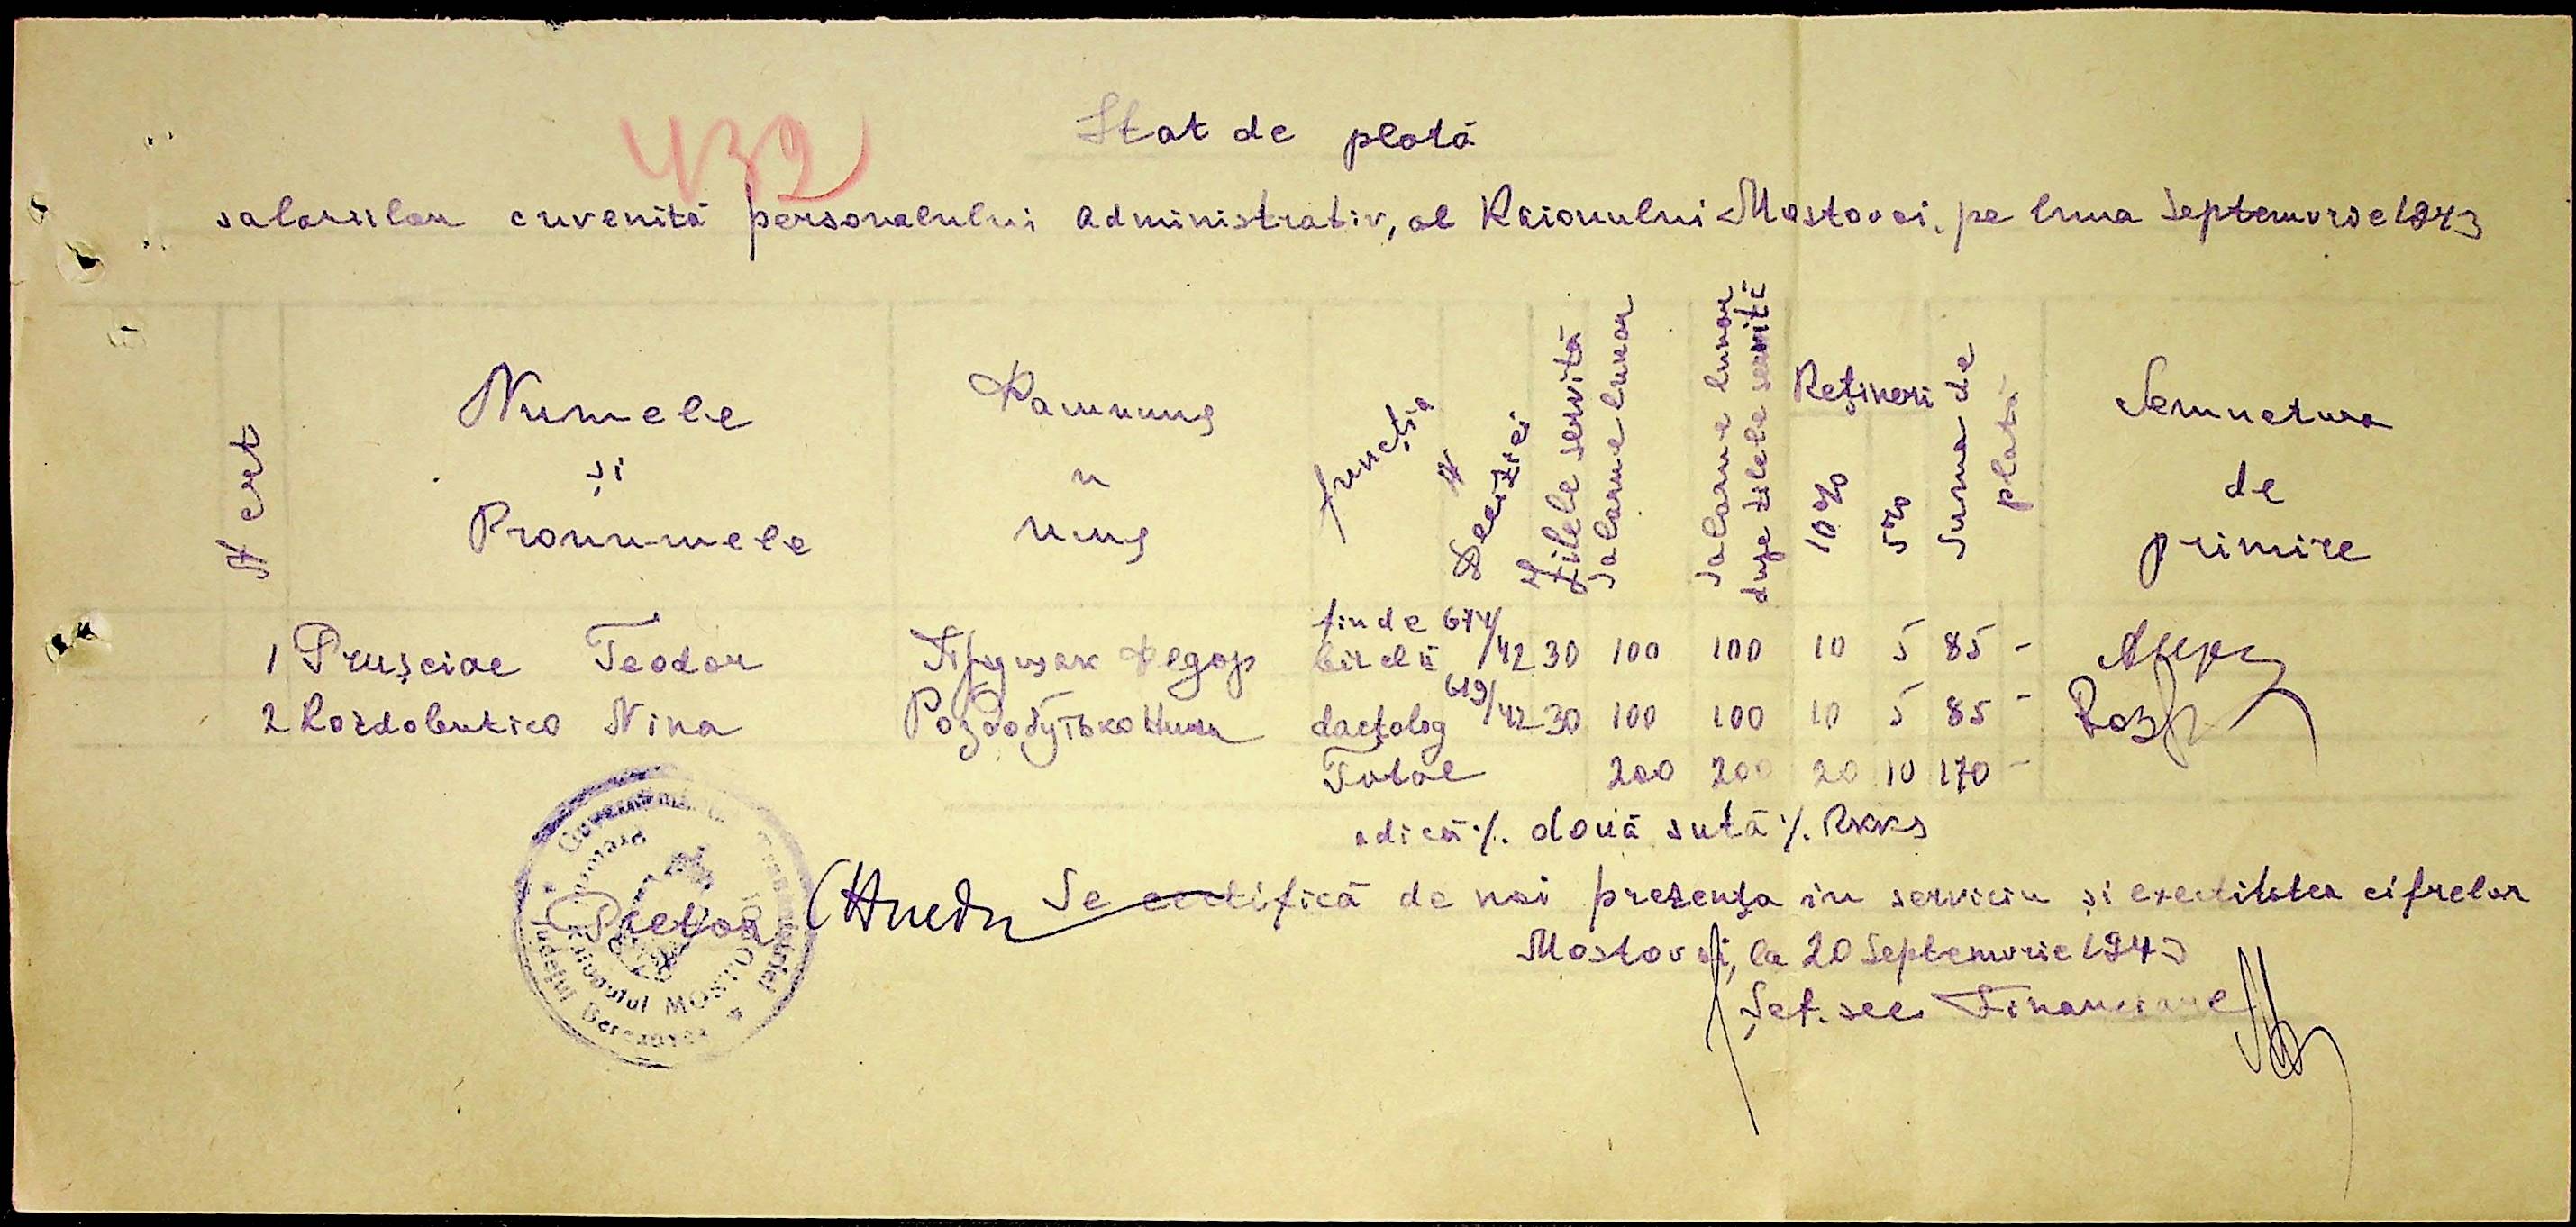 432
Stat de plată
salariilor cuvenită personalului administrativ, al Raionului Mostovoi, pe luna Septemvrie 1943
N crt
Numele
și
Pronumele
Фамилия
и
имя
funcția
N Deciziei
Zilele servită
Salarue lunar
Salarue lunar
dupe zilele servite
Rețineri
10%
5%
Suma de
plată
Semnetura
de
primire
1 Prușciac Teodor Прущак Федор 674/42 30 100 100 10 5 85 -
2 Rozdobutico Nina Роздобутько Нина dactolog 619/42 30 100 100 10 5 85 -
Total 200 200 20 10 170 -
adică ·/. două sută ·/. RKKS
Se certifică de noi prezența in serviciu și exectitatea cifrelor
Pretor
Mostovoi, la 20 Septemvrie 1943
Șef. sec. Financiare
Guvernământul Transnistriei
Județul Berezovca
Raionului MOSTOVOI